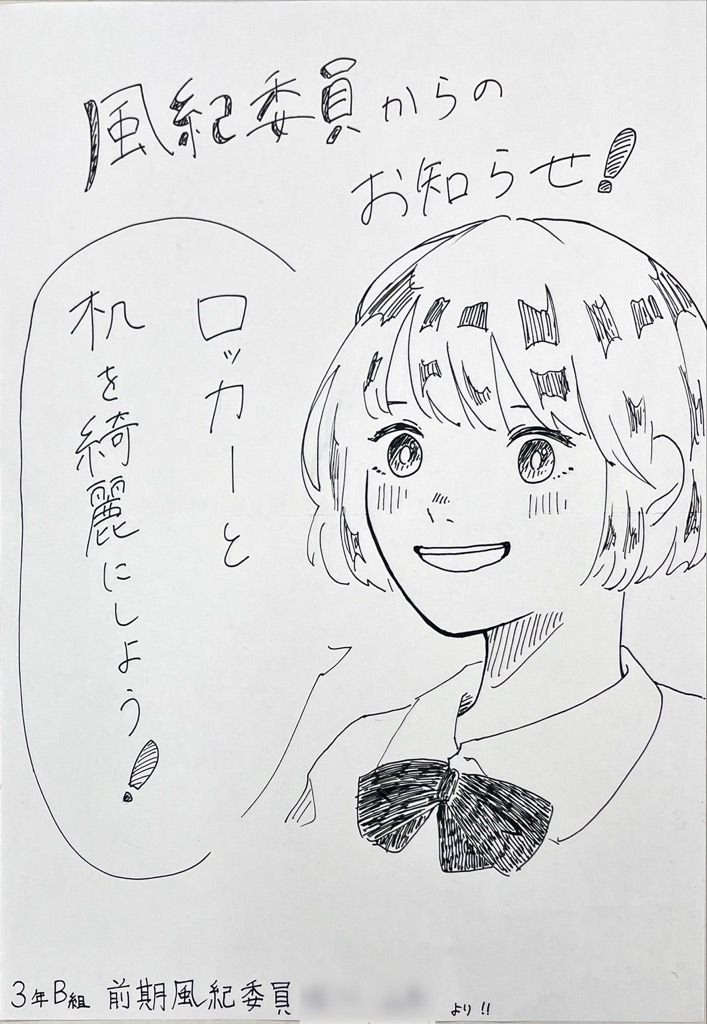 風紀委員からの
お知らせ!
ロッカーと
机を綺麗にしよう!
3年B組 前期風紀委員 より!!